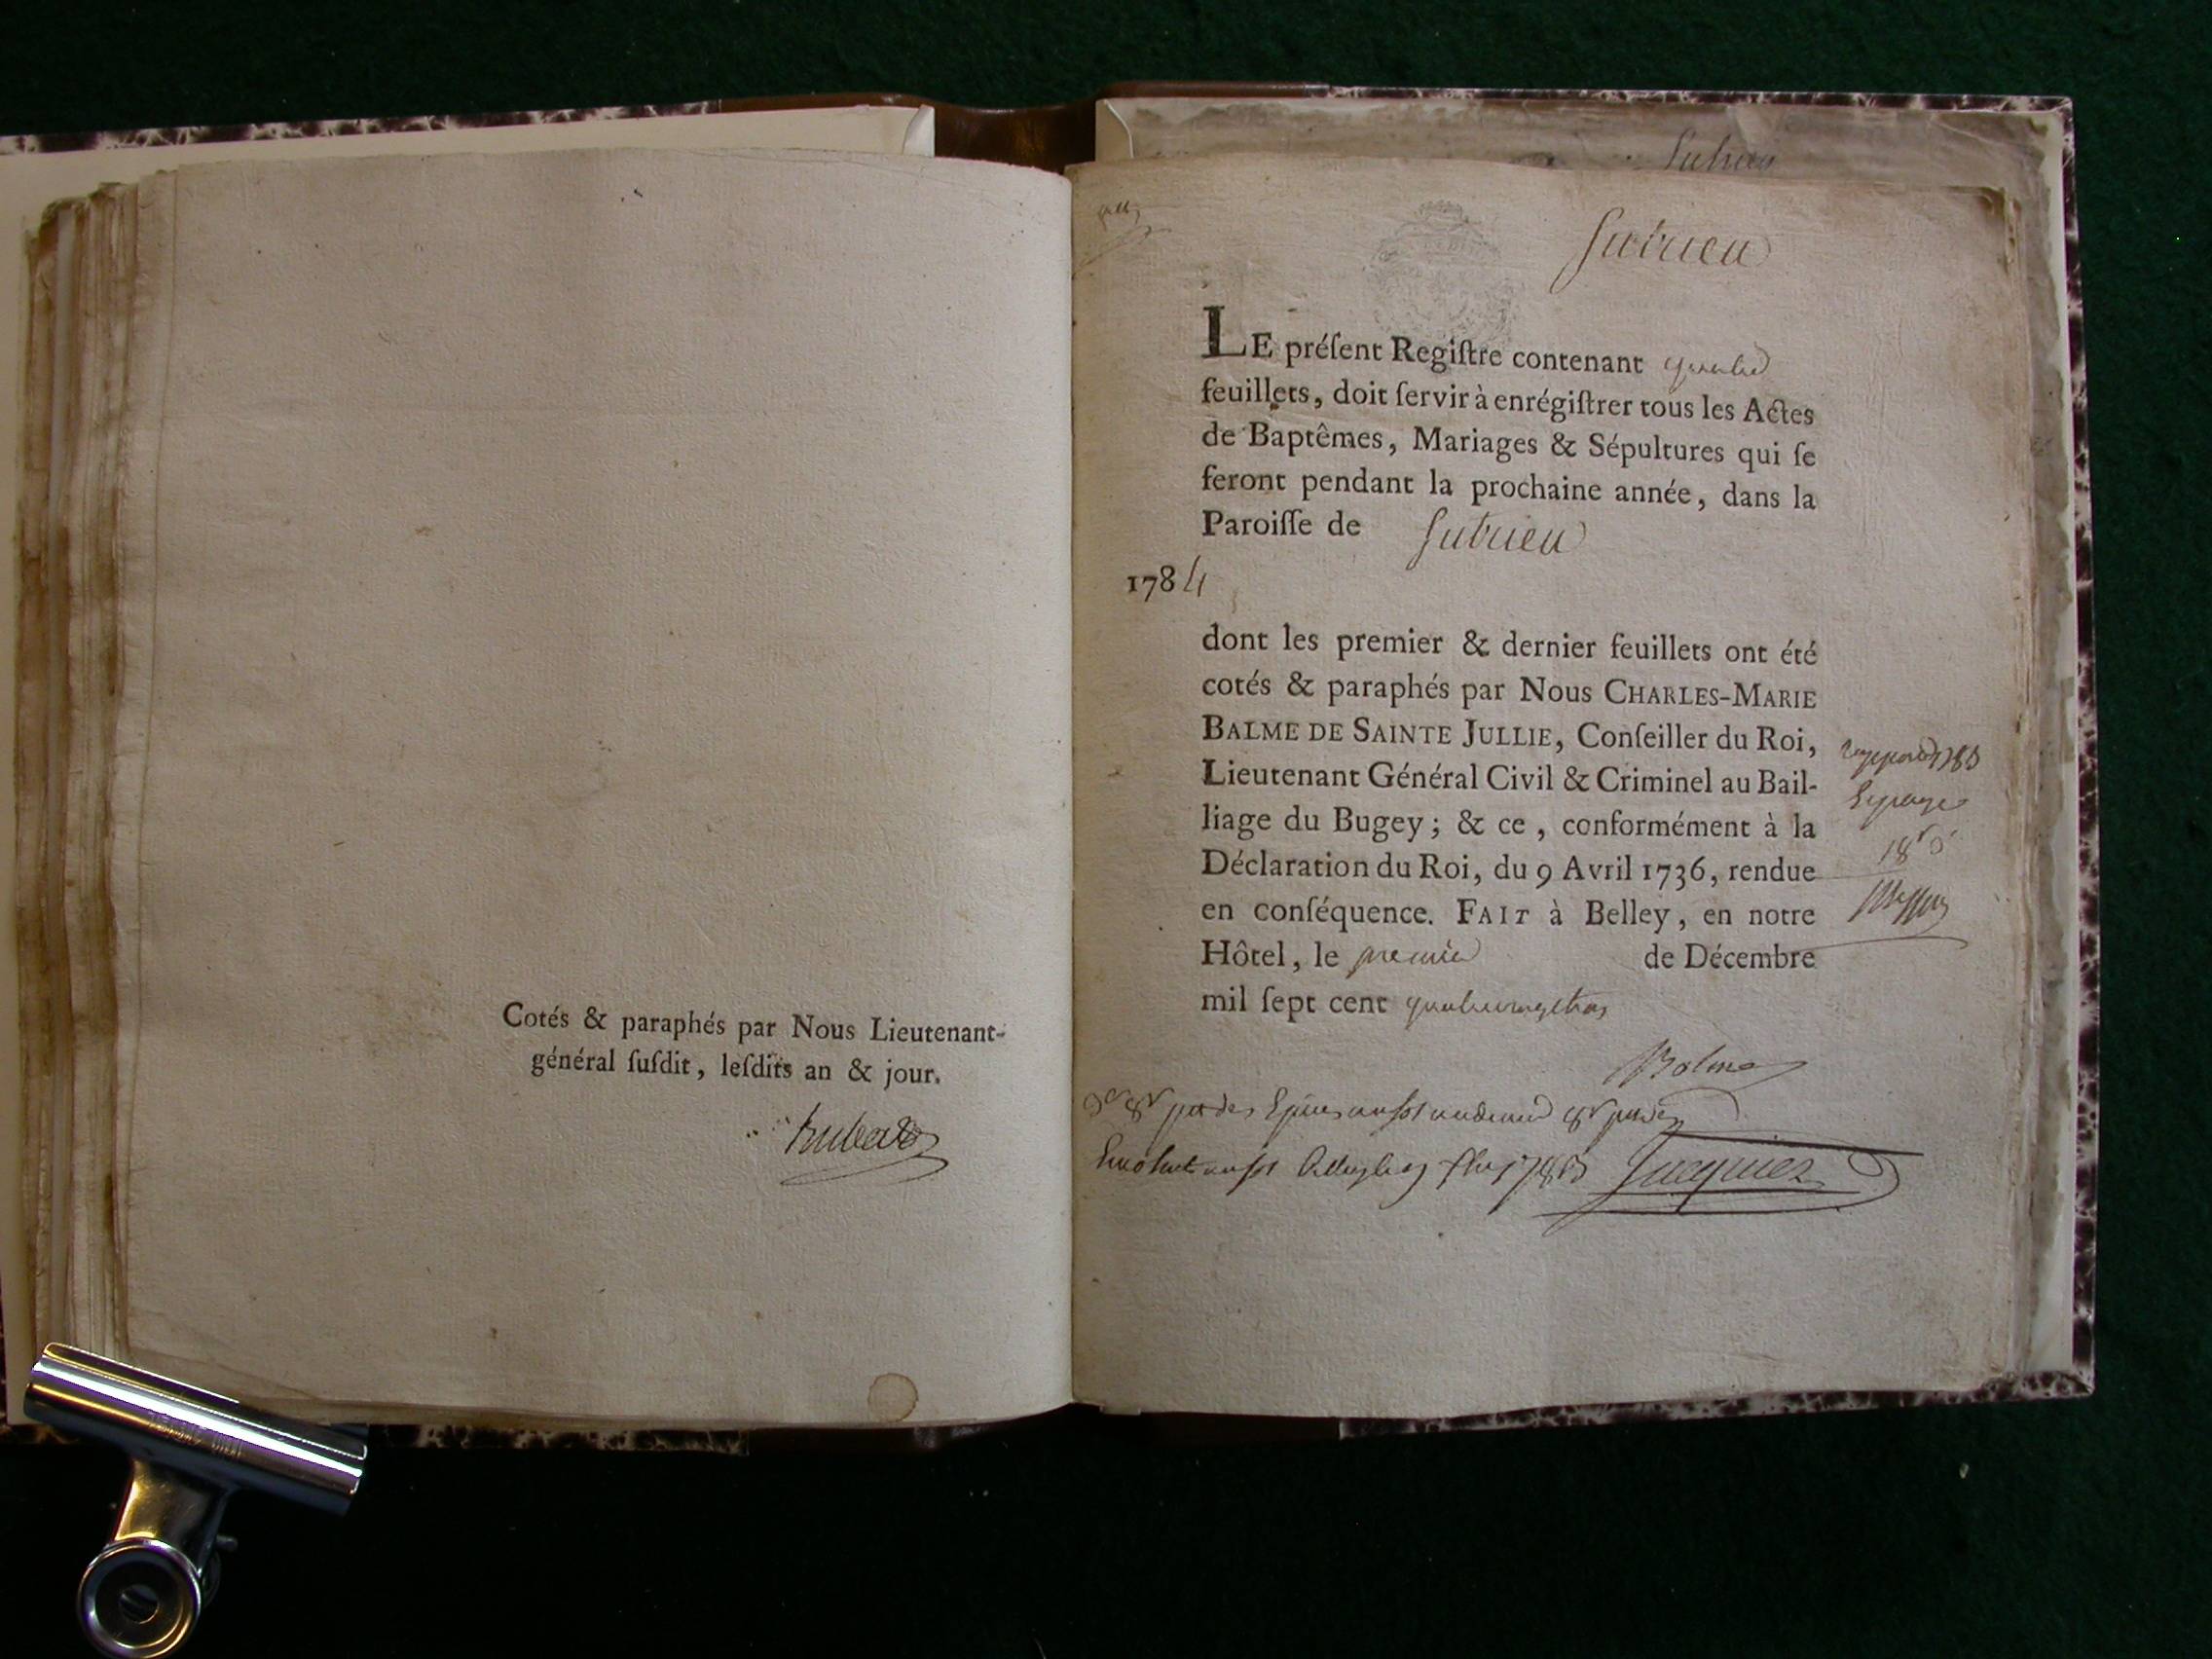 Cotés & paraphés par Nous Lieutenant-
général ſuſdit, leſdits an & jour.
Sutrieu
Sutrieu
LE préſent Regiſtre contenant quatre
feuillets, doit ſervir à enrégiſtrer tous les Actes
de Baptêmes, Mariages & Sépultures qui ſe
feront pendant la prochaine année, dans la
Paroiſſe de Sutrieu
1784
dont les premier & dernier feuillets ont été
cotés & paraphés par Nous CHARLES-MARIE
BALME DE SAINTE JULLIE, Conſeiller du Roi,
Lieutenant Général Civil & Criminel au Bail-
liage du Bugey; & ce, conformément à la
Déclaration du Roi, du 9 Avril 1736, rendue
en conſéquence. FAIT à Belley, en notre
Hôtel, le premier de Décembre
mil ſept cent quatrevingttrois
Balme
Jacquier